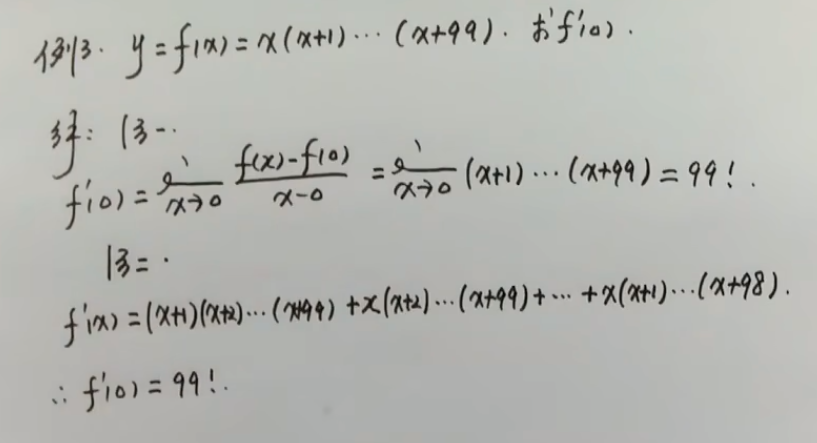 例3. y=f(x)=x(x+1)⋯(x+99). 求f'(0).
解: 法一.
f'(0)=lim x→0 (f(x)-f(0))/(x-0) =lim x→0 (x+1)⋯(x+99)=99!.
法二.
f'(x)=(x+1)(x+2)⋯(x+99)+x(x+2)⋯(x+99)+⋯+x(x+1)⋯(x+98).
∴ f'(0)=99!.